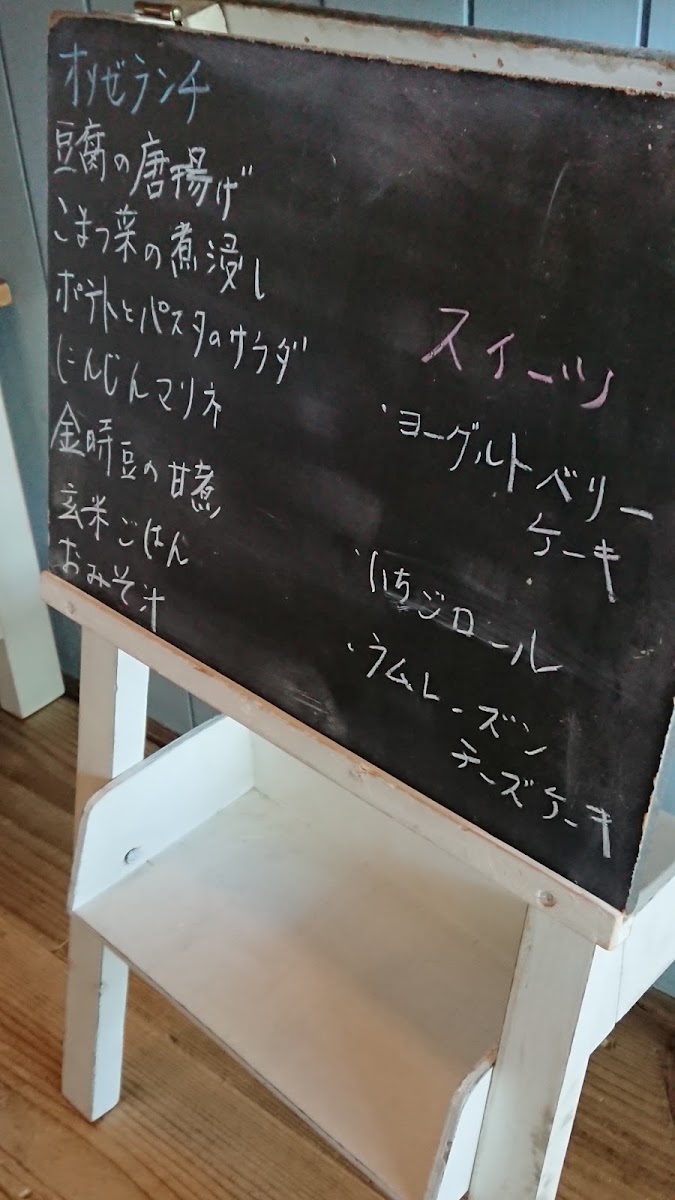 オリゼランチ
豆腐の唐揚げ
こまつ菜の煮浸し
ポテトとパスタのサラダ
にんじんマリネ
金時豆の甘煮
玄米ごはん
おみそ汁
スイーツ
・ヨーグルトベリー
ケーキ
・いちごロール
・ラムレーズン
チーズケーキ